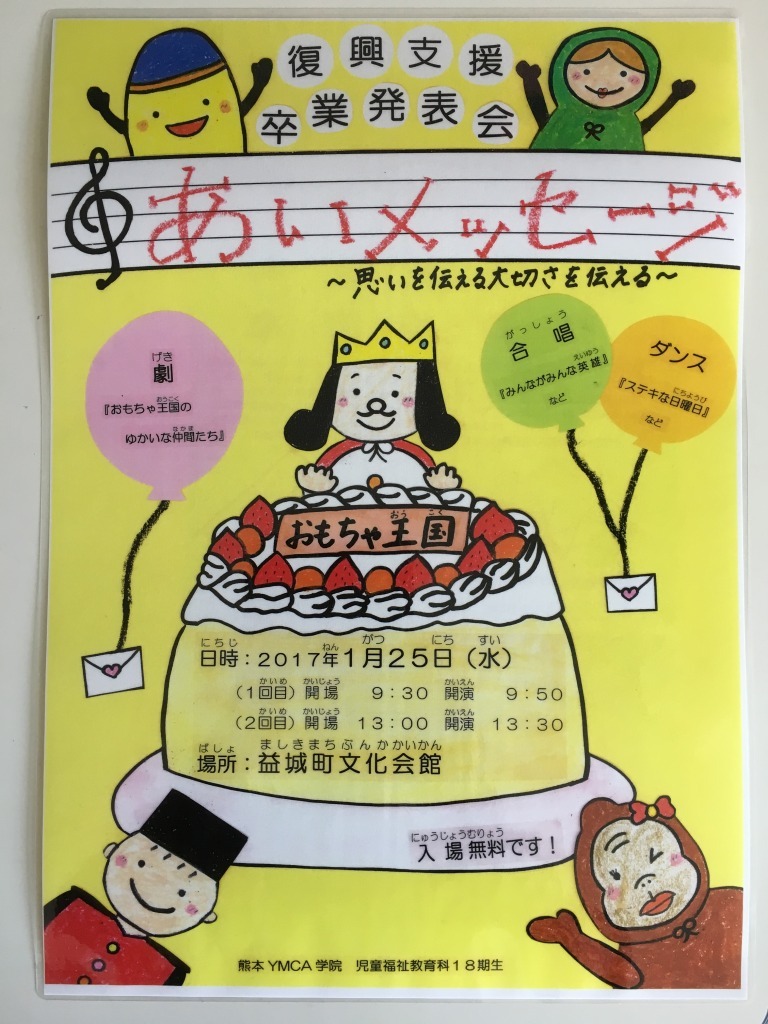 復興支援
卒業発表会
あいメッセージ
～思いを伝える大切さを伝える～
げき
劇
おうこく
『おもちゃ王国の
なかま
ゆかいな仲間たち』
がっしょう
合唱
えいゆう
『みんながみんな英雄』
など
ダンス
にちようび
『ステキな日曜日』
など
おう こく
おもちゃ王国
にちじ ねん がつ にち すい
日時：2017年1月25日（水）
かいめ かいじょう かいえん
（1回目）開場 9：30 開演 9：50
かいめ かいじょう かいえん
（2回目）開場 13：00 開演 13：30
ばしょ ましきまちぶんかかいかん
場所：益城町文化会館
にゅうじょうむりょう
入場無料です！
熊本YMCA学院 児童福祉教育科18期生